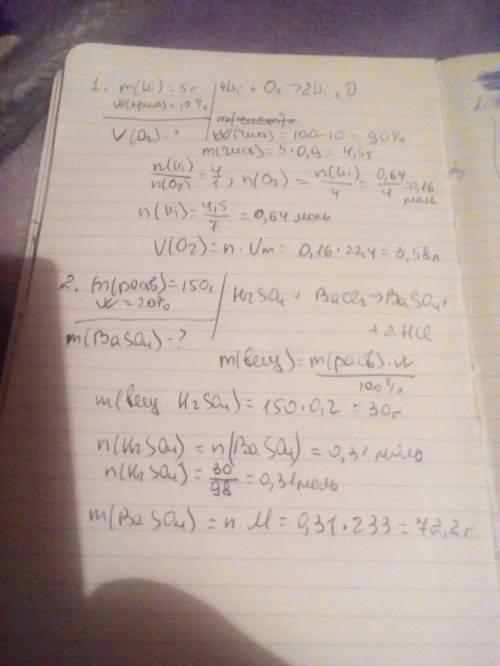 1. m(Li) = 5г | 4Li + O2 → 2Li2O
w(прим) = 10%
V(O2) - ?
w(чист) = 100-10 = 90%
m(чист) = 5·0,9 = 4,5г
n(Li)/n(O2) = 4/1, n(O2) = n(Li)/4 = 0,64/4 = 0,16 моль
n(Li) = 4,5/7 = 0,64 моль
V(O2) = n·Vm = 0,16·22,4 = 3,58л
2. m(раств) = 150г | H2SO4 + BaCl2 → BaSO4 +
w = 20% + 2HCl
m(BaSO4) - ?
m(вещ) = m(раств)·w/100%
m(вещ. H2SO4) = 150·0,2 = 30г
n(H2SO4) = n(BaSO4) = 0,31 моль
n(H2SO4) = 30/98 = 0,31 моль
m(BaSO4) = n·M = 0,31·233 = 72,2г